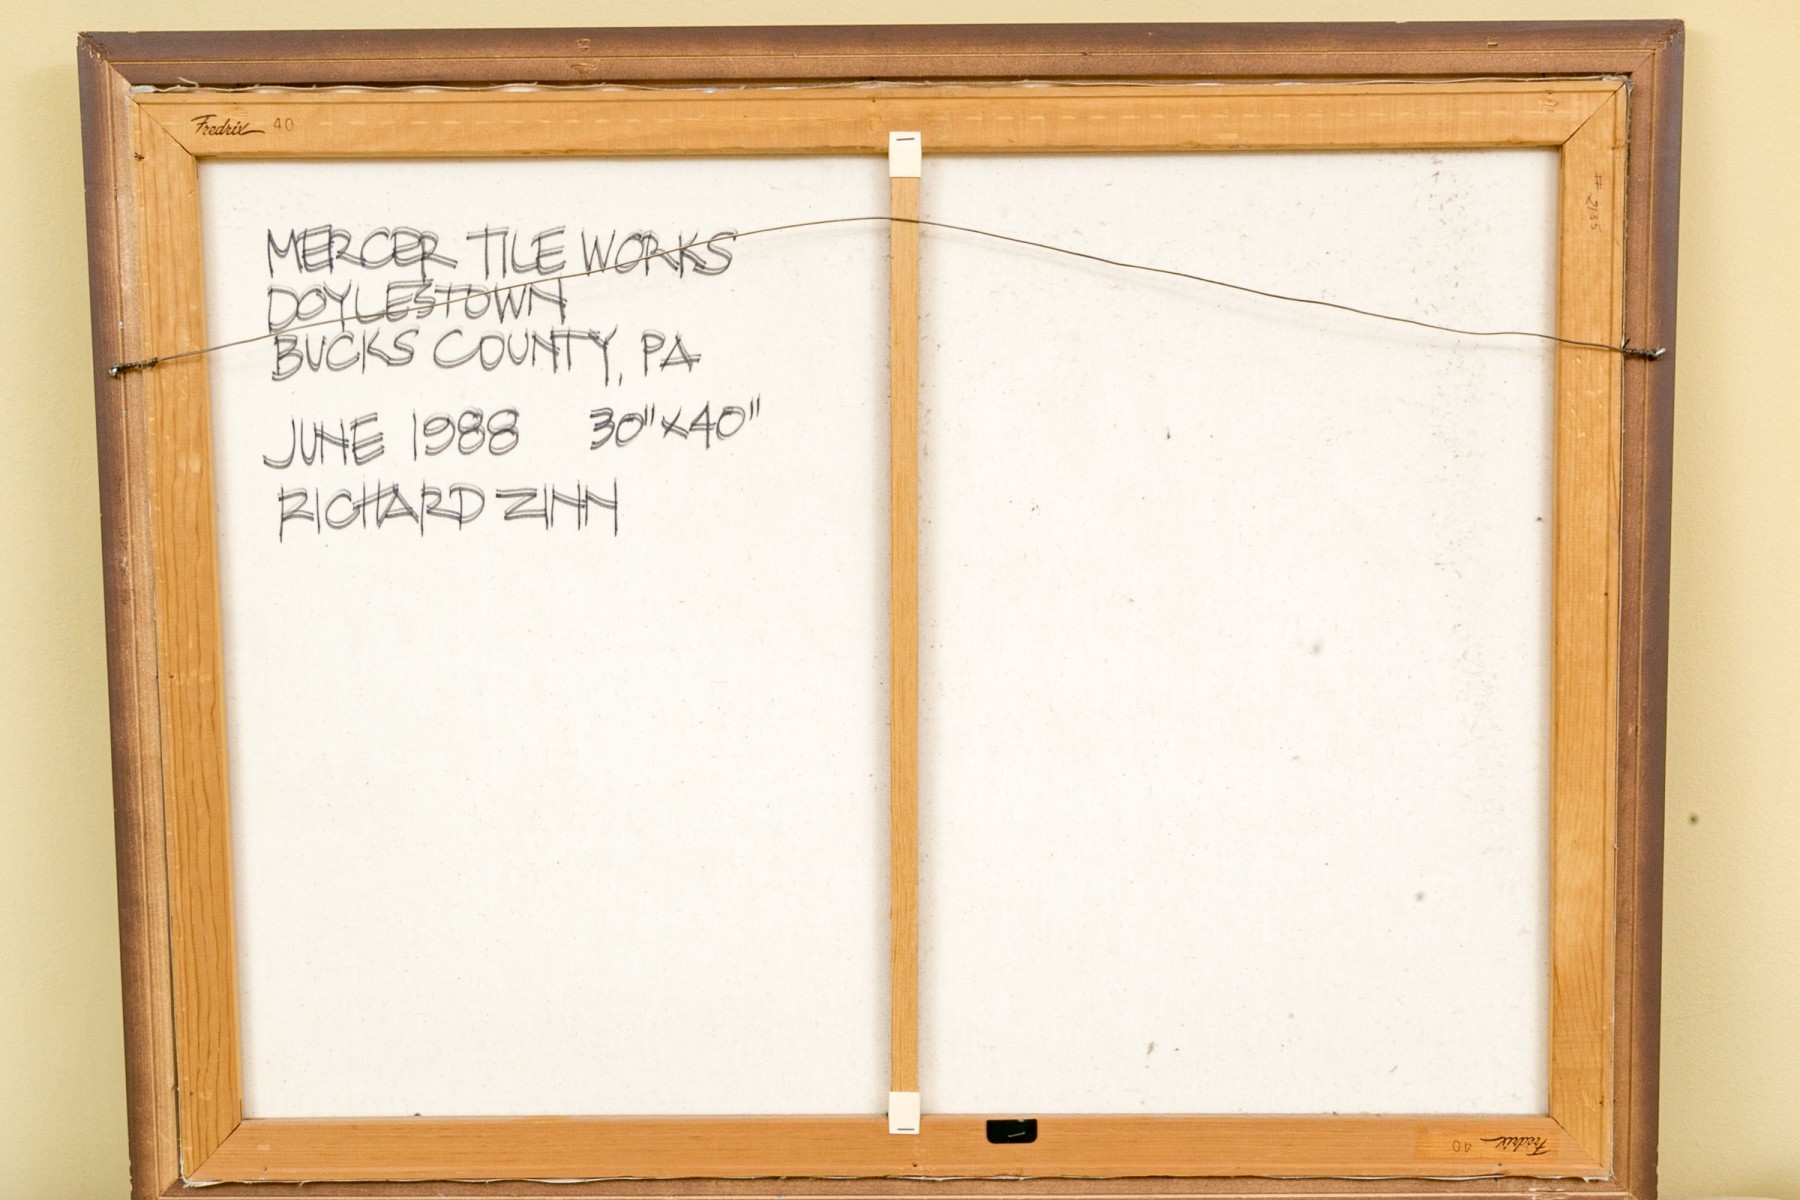 Fredrix 40
MERCER TILE WORKS
DOYLESTOWN
BUCKS COUNTY, PA
JUNE 1988 30"x40"
RICHARD ZINN
Fredrix 40